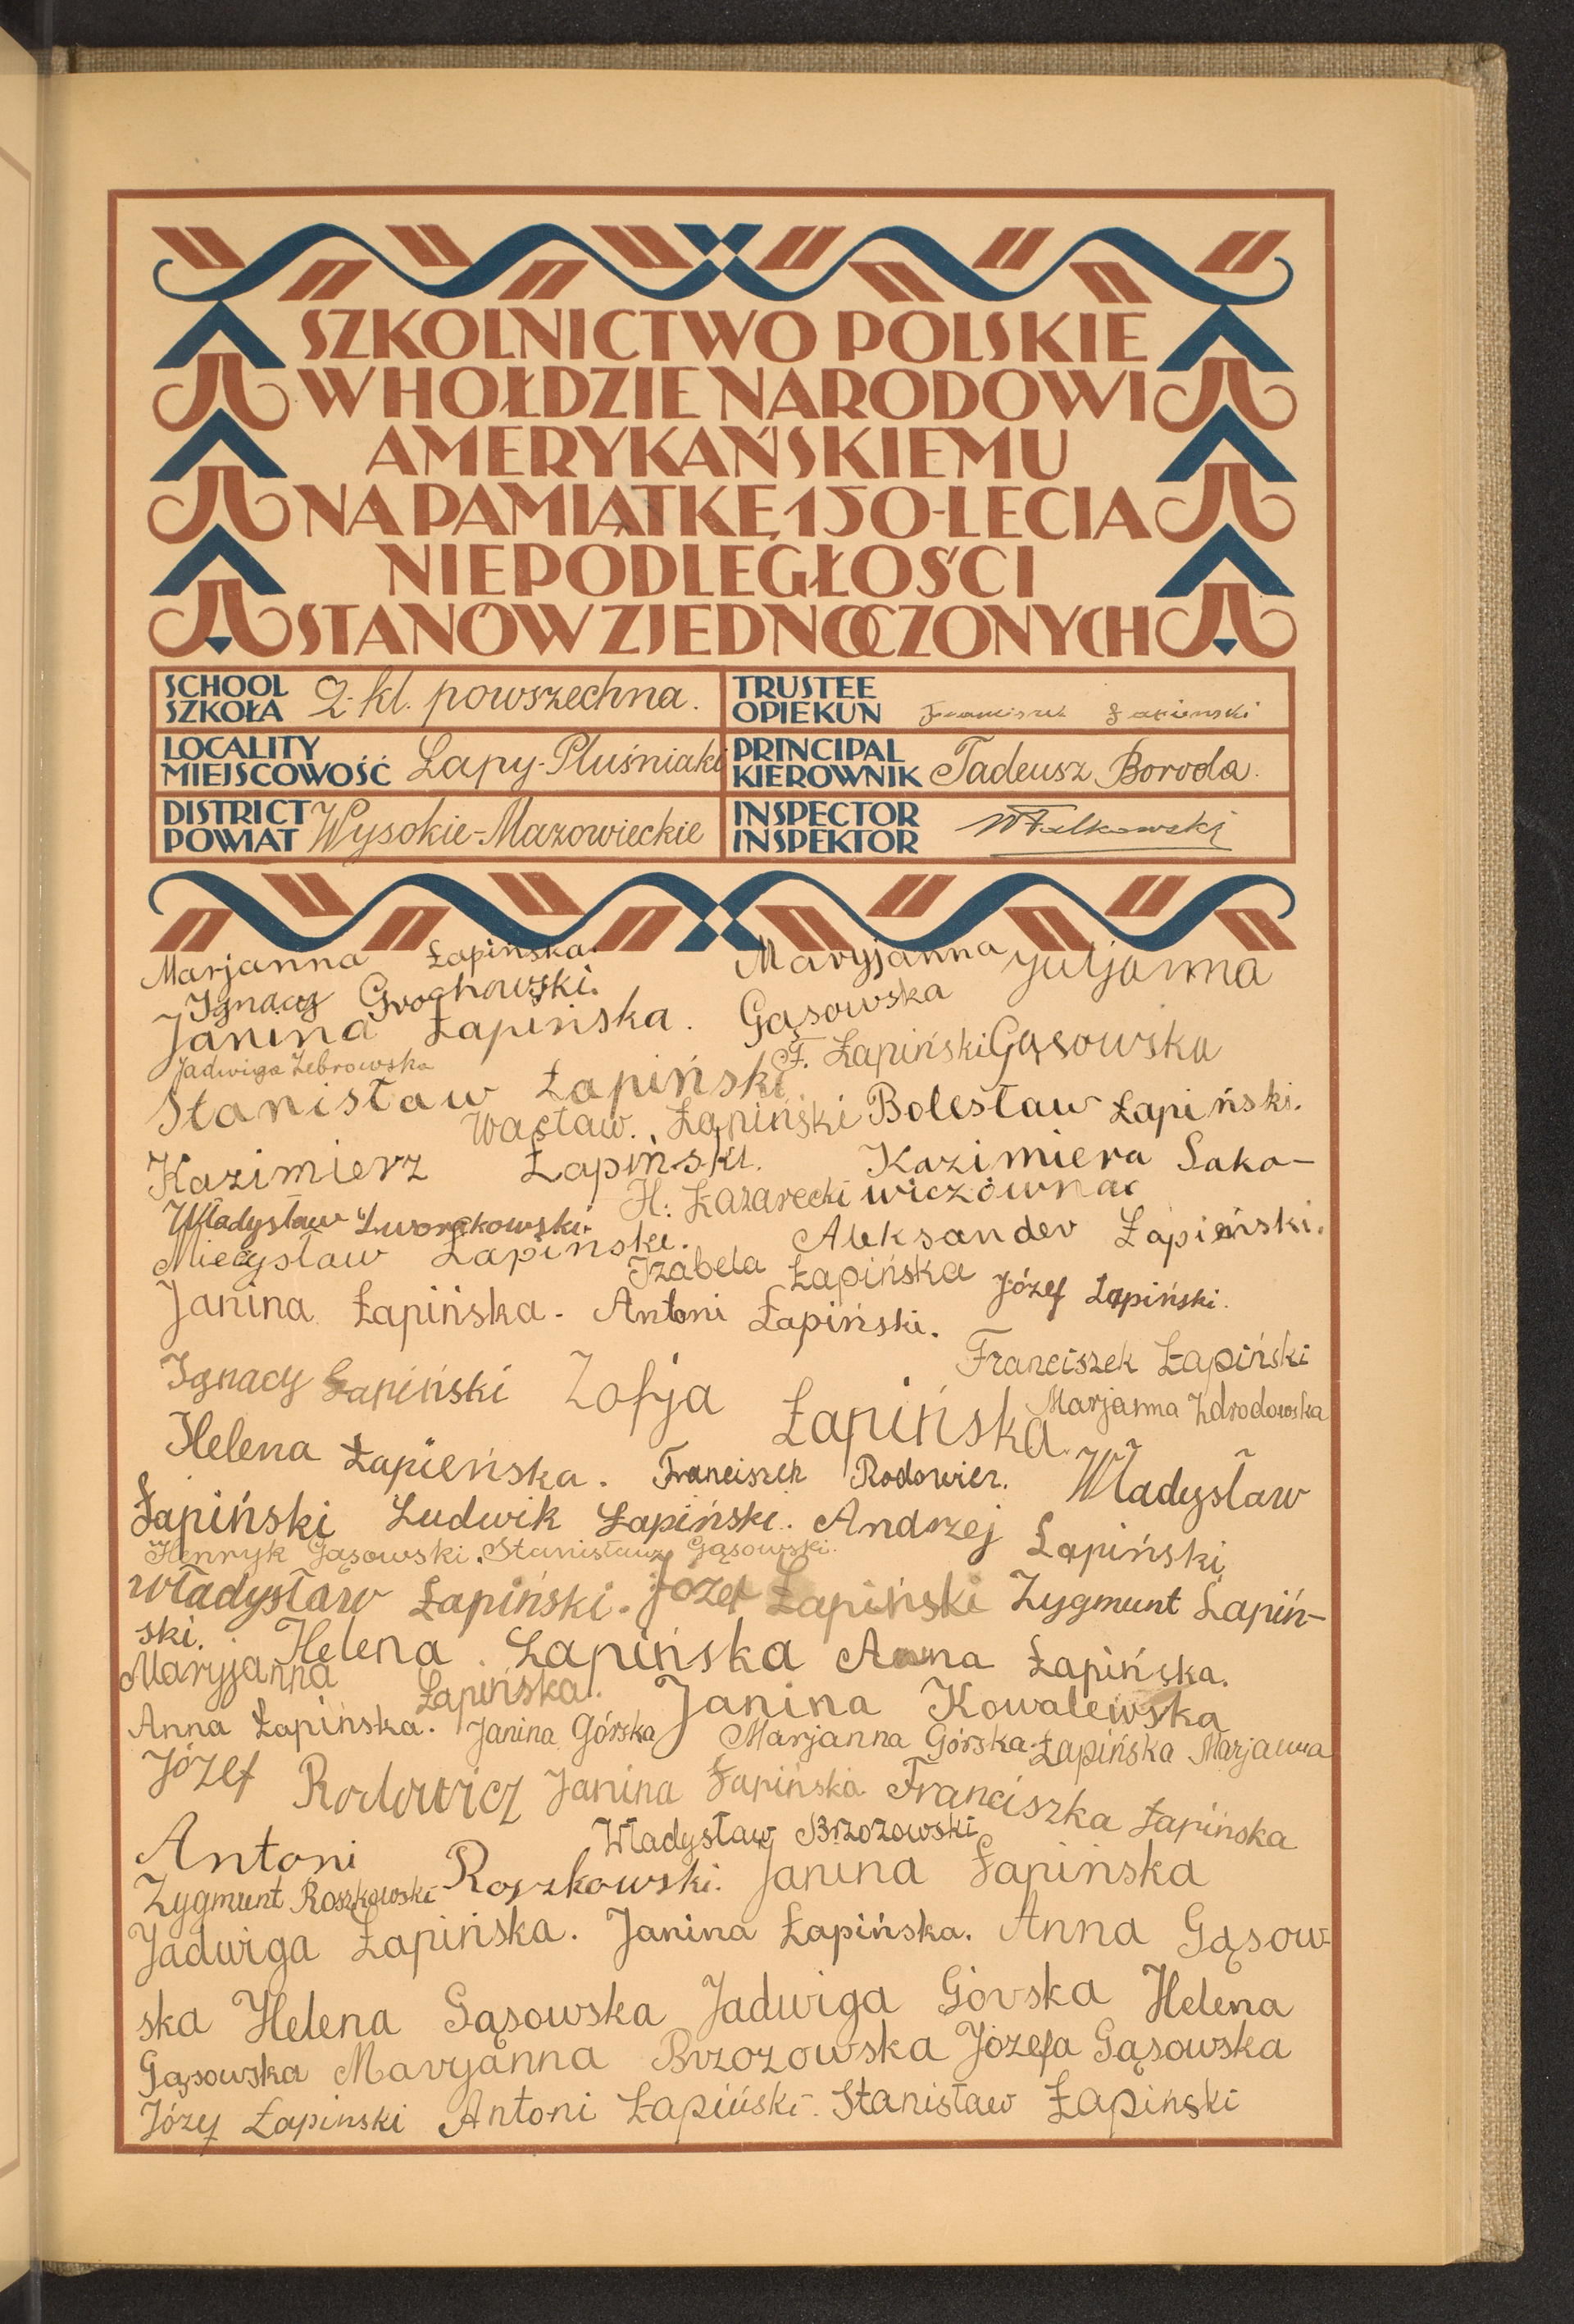 SZKOLNICTWO POLSKIE
W HOŁDZIE NARODOWI
AMERYKAŃSKIEMU
NA PAMIĄTKĘ 150-LECIA
NIEPODLEGŁOŚCI
STANÓW ZJEDNOCZONYCH
SCHOOL
SZKOŁA 2-kl. powszechna.
TRUSTEE
OPIEKUN Franciszek Łapieński
LOCALITY
MIEJSCOWOŚĆ Łapy-Pluśniaki
PRINCIPAL
KIEROWNIK Tadeusz Boroda.
DISTRICT
POWIAT Wysokie-Mazowieckie
INSPECTOR
INSPEKTOR WFalkowski
Marjanna Łapińska. Maryjanna Juljanna
Ignacy Grochowski.
Janina Łapińska. Gąsowska
Jadwiga Żebrowska F. Łapiński Gąsowska
Stanisław Łapiński
Wacław. Łapiński Bolesław Łapiński.
Kazimierz Łapiński. Kazimiera Sako-
Władysław H. Łazarecki wiczówna
Mieczysław Łapiński. Aleksander Łapiński.
Izabela Łapińska Józef Łapiński.
Janina Łapińska. Antoni Łapiński.
Franciszek Łapiński
Ignacy Łapiński Zofja Łapińska
Marjanna Zdrodowska
Helena Łapieńska. Franciszek Rodowicz. Władysław
Łapiński Ludwik Łapiński. Andrzej Łapiński
Henryk Gąsowski. Stanisław Gąsowski.
Władysław Łapiński. Józef Łapiński Zygmunt Łapiń-
ski. Helena Łapińska Anna Łapińska.
Maryjanna Łapińska. Janina Kowalewska
Anna Łapińska. Janina Górska Marjanna Górska Łapińska Marjanna
Józef Rodowicz Janina Łapińska Franciszka Łapińska
Władysław Brzozowski
Antoni Roszkowski. Janina Łapińska
Zygmunt Roszkowski
Jadwiga Łapińska. Janina Łapińska. Anna Gąsow-
ska Helena Gąsowska Jadwiga Górska Helena
Gąsowska Maryanna Brzozowska Józefa Gąsowska
Józef Łapiński Antoni Łapiński. Stanisław Łapiński